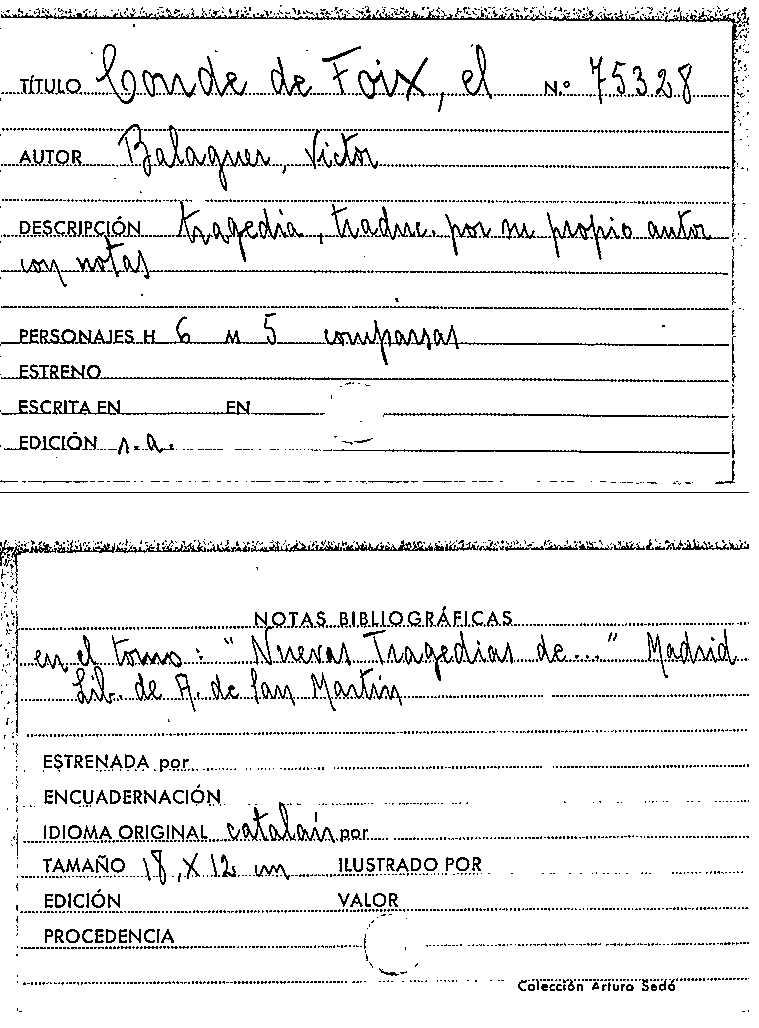 TÍTULO Conde de Foix, el N.º 75328
AUTOR Balaguer, Victor
DESCRIPCIÓN tragedia, traduc. por su propio autor
con notas
PERSONAJES H 6 M 5 comparsas
ESTRENO
ESCRITA EN EN
EDICIÓN s.a.
NOTAS BIBLIOGRÁFICAS
en el tomo: "Nuevas Tragedias de..." Madrid
Lib. de A. de San Martín
ESTRENADA por
ENCUADERNACIÓN
IDIOMA ORIGINAL catalán por
TAMAÑO 18 x 12 cm ILUSTRADO POR
EDICIÓN VALOR
PROCEDENCIA
Colección Arturo Sedó